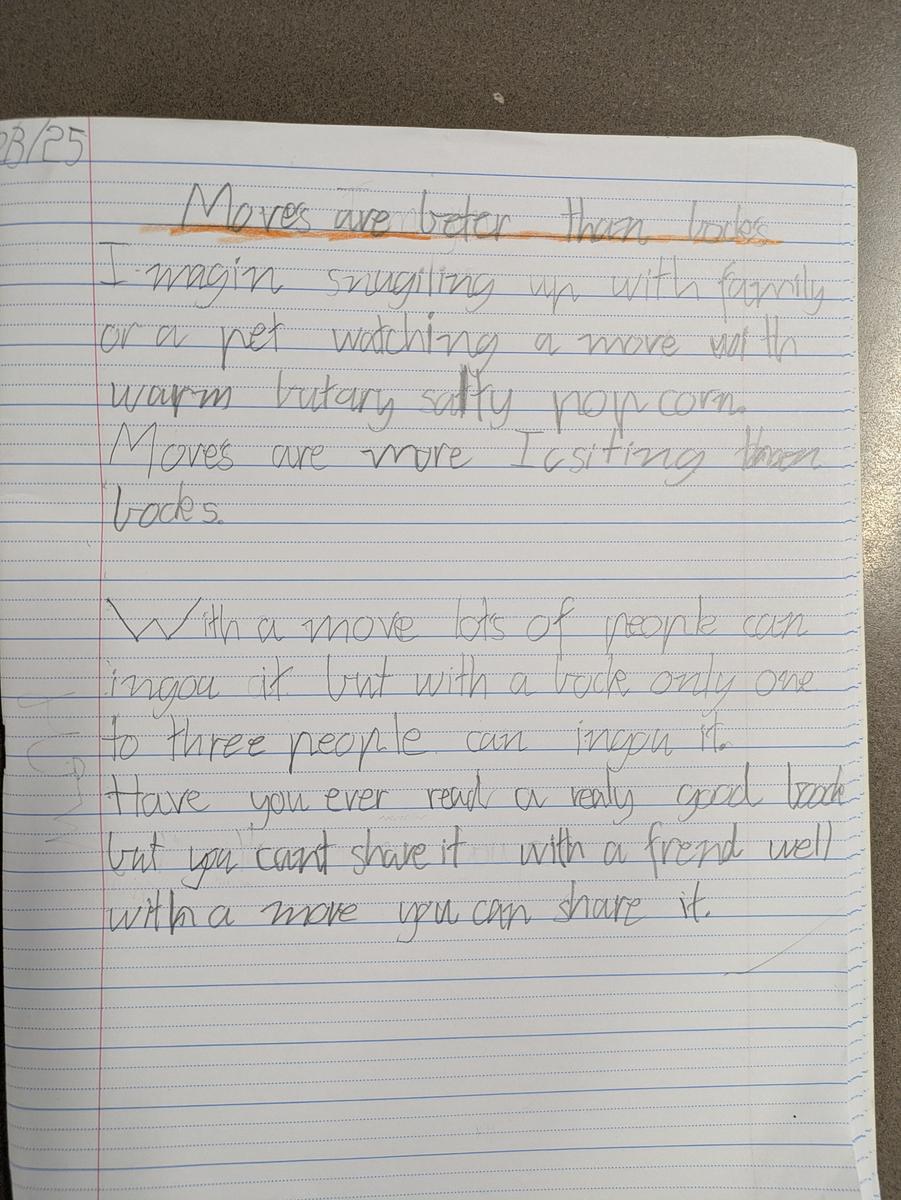 23/25
Moves are beter than bocks
I magin snugiling up with family
or a pet watching a move with
warm butary salty popcorn.
Moves are more Icsiting than
bocks.
With a move lots of people can
ingou it but with a bock only one
to three people can ingou it.
Have you ever read a realy good bock
but you cant share it with a frend well
with a move you can share it.